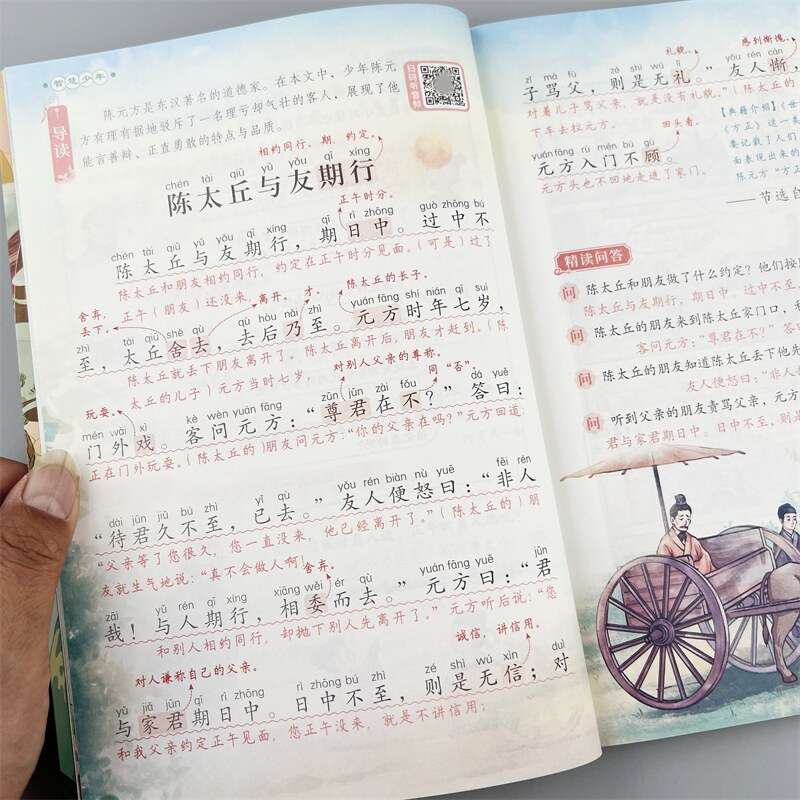 智慧少年
导读
陈元方是东汉著名的道德家。在本文中，少年陈元
方有理有据地驳斥了一名理亏却气壮的客人，展现了他
能言善辩、正直勇敢的特点与品质。
扫码听音频
相约同行。期，约定。
chén tài qiū yǔ yǒu qī xíng
陈太丘与友期行
正午时分。
chén tài qiū yǔ yǒu qī xíng qī rì zhōng guò zhōng bú
陈太丘与友期行，期日中。过中不
陈太丘和朋友相约同行，约定在正午时分见面。（可是）过了
舍弃，丢下。
正午（朋友）还没来，
离开。
才。
陈太丘的长子。
zhì tài qiū shě qù qù hòu nǎi zhì yuán fāng shí nián qī suì
至，太丘舍去，去后乃至。元方时年七岁，
陈太丘就丢下朋友离开了。陈太丘离开后，朋友才赶到。（陈
太丘的儿子）元方当时七岁，
对别人父亲的尊称。
同“否”。
玩耍。
mén wài xì kè wèn yuán fāng zūn jūn zài fǒu dá yuē
门外戏。客问元方：“尊君在不？”答曰：
正在门外玩耍。（陈太丘的）朋友问元方：“你的父亲在吗？”元方回道：
dài jūn jiǔ bú zhì yǐ qù yǒu rén biàn nù yuē fēi rén
“待君久不至，已去。”友人便怒曰：“非人
“父亲等了您很久，您一直没来，他已经离开了。”（陈太丘的）朋
友就生气地说：“真不会做人啊！
舍弃。
zāi yǔ rén qī xíng xiāng wěi ér qù yuán fāng yuē jūn
哉！与人期行，相委而去。”元方曰：“君
和别人相约同行，却抛下别人先离开了。”元方听后说：“您
对人谦称自己的父亲。
诚信，讲信用。
yǔ jiā jūn qī rì zhōng rì zhōng bú zhì zé shì wú xìn duì
与家君期日中。日中不至，则是无信；对
和我父亲约定正午见面，您正午没来，就是不讲信用；
礼貌。
感到惭愧。
zǐ mà fù zé shì wú lǐ yǒu rén cán
子骂父，则是无礼。”友人惭，
对着儿子骂父亲，就是没有礼貌。”（陈太丘的
下车去拉元方。
回头看。
yuán fāng rù mén bú gù
元方入门不顾。
元方头也不回地走进了家门。
【典籍介绍】《世
《方正》这一类
要记载了人们
面表现出来的
陈元方“方正
——节选自
精读问答
问 陈太丘和朋友做了什么约定？他们按
陈太丘与友期行，期日中。过中不至，
问 陈太丘的朋友来到陈太丘家门口，和
客问元方：“尊君在不？”答
问 陈太丘的朋友知道陈太丘丢下他先
友人便怒曰：“非人
问 听到父亲的朋友责骂父亲，元方
君与家君期日中。日中不至，则是